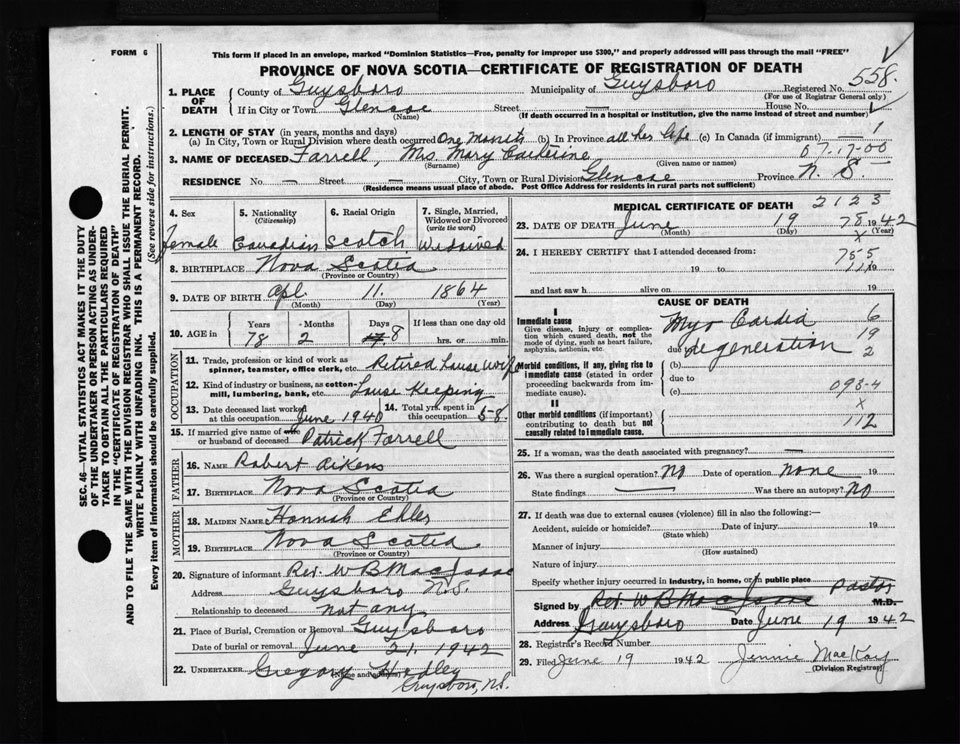 FORM 6
This form if placed in an envelope, marked "Dominion Statistics—Free, penalty for improper use $300," and properly addressed will pass through the mail "FREE"
PROVINCE OF NOVA SCOTIA—CERTIFICATE OF REGISTRATION OF DEATH
558.
1. PLACE OF DEATH
County of Guysboro Municipality of Guysboro Registered No.
(For use of Registrar General only)
If in City or Town Glencoe Street House No.
(Name) (If death occurred in a hospital or institution, give the name instead of street and number)
2. LENGTH OF STAY (in years, months and days)
(a) In City, Town or Rural Division where death occurred One Month (b) In Province all her life (c) In Canada (if immigrant) — 1
07-17-00
3. NAME OF DECEASED Farrell, Mrs. Mary Catherine
(Surname) (Given name or names)
RESIDENCE No. — Street — City, Town or Rural Division Glencoe Province N. S.
(Residence means usual place of abode. Post Office Address for residents in rural parts not sufficient)
SEC. 46—VITAL STATISTICS ACT MAKES IT THE DUTY
OF THE UNDERTAKER OR PERSON ACTING AS UNDER-
TAKER TO OBTAIN ALL THE PARTICULARS REQUIRED
IN THE "CERTIFICATE OF REGISTRATION OF DEATH"
AND TO FILE THE SAME WITH THE DIVISION REGISTRAR WHO SHALL ISSUE THE BURIAL PERMIT.
WRITE PLAINLY WITH UNFADING INK. THIS IS A PERMANENT RECORD.
Every item of information should be carefully supplied. (See reverse side for instructions.)
4. Sex
female
5. Nationality (Citizenship)
Canadian
6. Racial Origin
Scotch
7. Single, Married, Widowed or Divorced (write the word)
Widowed
8. BIRTHPLACE Nova Scotia
(Province or Country)
9. DATE OF BIRTH Apl. 11. 1864
(Month) (Day) (Year)
10. AGE in Years Months Days If less than one day old
78 2 8 hrs. or min.
OCCUPATION
11. Trade, profession or kind of work as spinner, teamster, office clerk, etc. Retired house wife
12. Kind of industry or business, as cotton-mill, lumbering, bank, etc. House Keeping
13. Date deceased last worked at this occupation June 1940
14. Total yrs. spent in this occupation 58
15. If married give name of wife or husband of deceased Patrick Farrell
FATHER
16. NAME Robert Aikens
17. BIRTHPLACE Nova Scotia
(Province or Country)
MOTHER
18. MAIDEN NAME Hannah Ehler
19. BIRTHPLACE Nova Scotia
(Province or Country)
20. Signature of informant Rev. W B MacIsaac
Address Guysboro N.S.
Relationship to deceased not any
21. Place of Burial, Cremation or Removal Guysboro
Date of burial or removal June 21, 1942
22. UNDERTAKER Gregory Hadley
(Name and address)
Guysboro, N.S.
MEDICAL CERTIFICATE OF DEATH 2123
23. DATE OF DEATH June 19 78 1942
(Month) (Day) (Year)
x
24. I HEREBY CERTIFY that I attended deceased from:
755
19 to 19
and last saw h alive on 19
CAUSE OF DEATH
I
Immediate cause
Give disease, injury or complication which caused death, not the mode of dying, such as heart failure, asphyxia, asthenia, etc.
Myo Cardia 6
due to degeneration 19
2
Morbid conditions, if any, giving rise to immediate cause (stated in order proceeding backwards from immediate cause).
(b)
due to
(c) 093-4
x
II
Other morbid conditions (if important) contributing to death but not causally related to immediate cause.
112
25. If a woman, was the death associated with pregnancy? —
26. Was there a surgical operation? NO Date of operation none 19
State findings — Was there an autopsy? NO
27. If death was due to external causes (violence) fill in also the following:—
Accident, suicide or homicide? Date of injury 19
(State which)
Manner of injury
(How sustained)
Nature of injury
Specify whether injury occurred in industry, in home, or in public place
Signed by Rev. W B MacIsaac Pastor M.D.
Address Guysboro Date June 19 1942
28. Registrar's Record Number
29. Filed June 19 1942 Jennie MacKay
(Division Registrar)